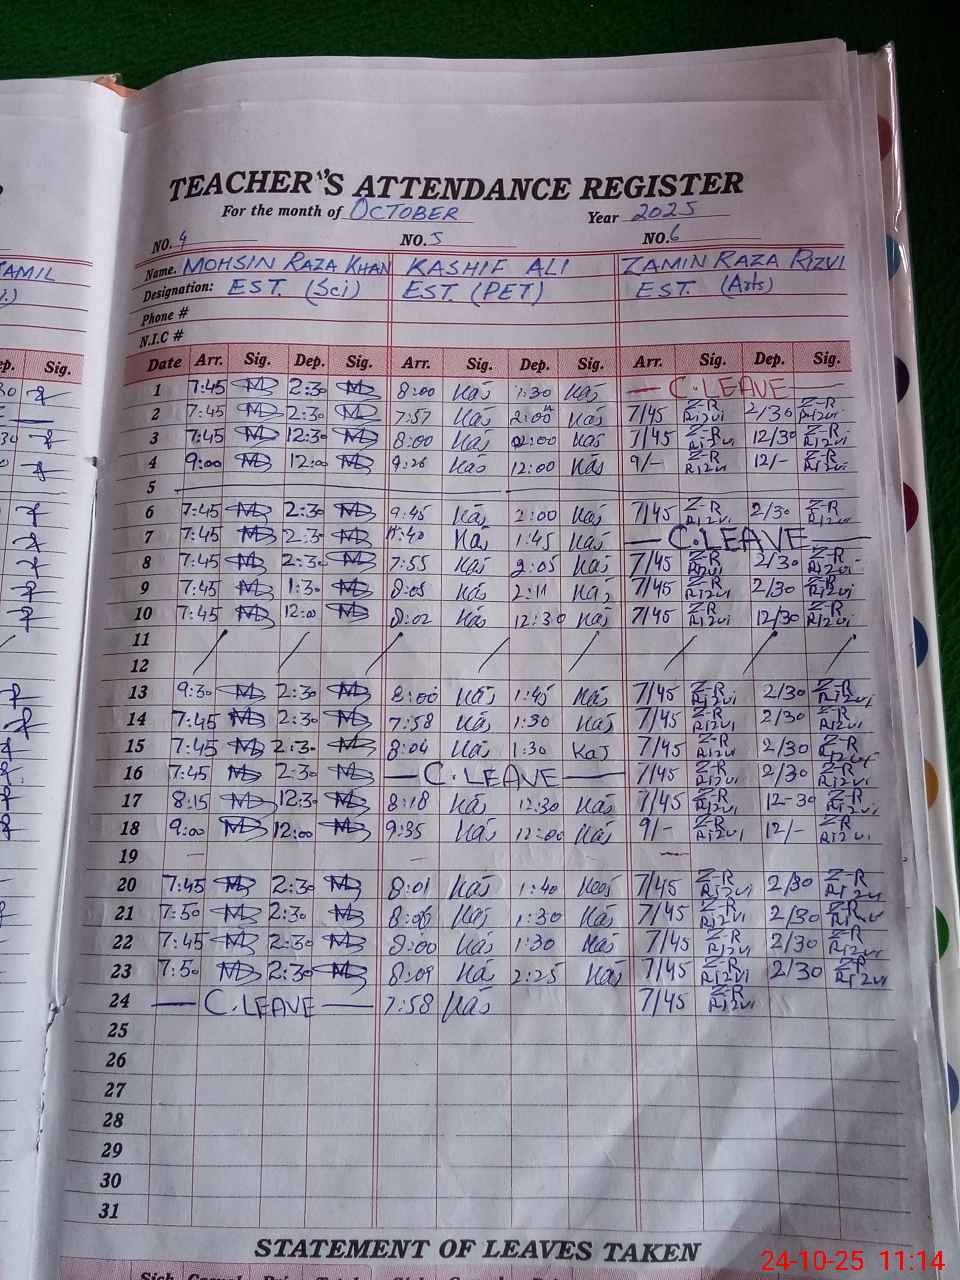 TEACHER'S ATTENDANCE REGISTER
For the month of OCTOBER Year 2025
NO. 4 NO. 5 NO. 6
TAMIL Name. MOHSIN RAZA KHAN KASHIF ALI ZAMIN RAZA RIZVI
Designation: EST. (Sci) EST. (PET) EST. (Arts)
Phone #
N.I.C #
ep. Sig. Date Arr. Sig. Dep. Sig. Arr. Sig. Dep. Sig. Arr. Sig. Dep. Sig.
1 7:45 2:30 8:00 Kas 1:30 Kas — C.LEAVE —
2 7:45 2:30 7:57 Kas 2:00 Kas 7/45 Z-R Rizvi 2/30 Z-R Rizvi
3 7:45 12:30 8:00 Kas Kas 7/45 Z-R Rizvi 12/30 Z-R Rizvi
4 9:00 12:00 Kas 12:00 Kas 9/- Z-R Rizvi 12/- Z-R Rizvi
5
6 7:45 2:30 Kas 2:00 Kas 7/45 Z-R Rizvi 2/30 Z-R Rizvi
7 7:45 2:30 Kas 1:45 Kas — C.LEAVE —
8 7:45 2:30 7:55 Kas 2:05 Kas 7/45 Z-R Rizvi 2/30 Z-R Rizvi
9 7:45 1:30 8:05 Kas 2:11 Kas 7/45 Z-R Rizvi 2/30 Z-R Rizvi
10 7:45 12:00 8:02 Kas 12:30 Kas 7/45 Z-R Rizvi 12/30 Z-R Rizvi
11
12
13 9:30 2:30 8:00 Kas 1:45 Kas 7/45 Z-R Rizvi 2/30 Z-R Rizvi
14 7:45 2:30 7:58 Kas 1:30 Kas 7/45 Z-R Rizvi 2/30 Z-R Rizvi
15 7:45 2:30 8:04 Kas 1:30 Kas 7/45 Z-R Rizvi 2/30 Z-R Rizvi
16 7:45 2:30 — C.LEAVE — 7/45 Z-R Rizvi 2/30 Z-R Rizvi
17 8:15 12:30 8:18 Kas 12:30 Kas 7/45 Z-R Rizvi 12-30 Z-R Rizvi
18 9:00 12:00 9:35 Kas 12:00 Kas 9/- Z-R Rizvi 12/- Z-R Rizvi
19 — — — —
20 7:45 2:30 8:01 Kas 1:40 Kas 7/45 Z-R Rizvi 2/30 Z-R Rizvi
21 7:50 2:30 Kas 1:30 Kas 7/45 Z-R Rizvi 2/30 Z-R Rizvi
22 7:45 2:30 8:00 Kas 1:30 Kas 7/45 Z-R Rizvi 2/30 Z-R Rizvi
23 7:50 2:30 8:09 Kas 2:25 Kas 7/45 Z-R Rizvi 2/30 Z-R Rizvi
24 — C.LEAVE — 7:58 Kas 7/45 Z-R Rizvi
25
26
27
28
29
30
31
STATEMENT OF LEAVES TAKEN
24-10-25 11:14